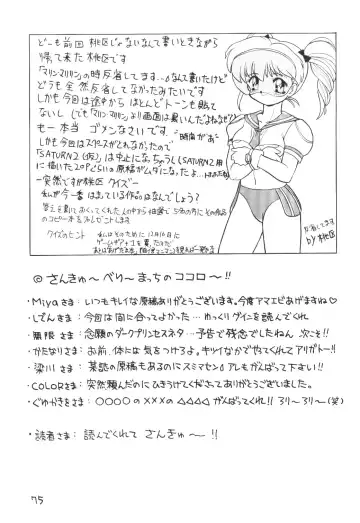 どーも前回桃区じゃないなんて書いときながら
帰って来た桃区です
「マリン・マリリン」の時反省してます…なんて書いたけど
どうも全然反省してなかったみたいです
しかも今回は途中からほとんどトーンも貼って
ないし(でも「マリン・マリリン」より画面は黒いんだよねなぜ?)
もー本当ゴメンなさいです
"時間がぁ"
しかも今回スペースがとれなかったので
「SATURN2(仮)」は中止になっちゃうし(SATURN2用
に描いた20Pぐらいの原稿がムダになったよ…
ー突然ですが桃区クイズー
私が今一番はまっている作品はなんでしょう?
答えを書いておくってくれた人の中から抽選で5名の方にその作品
のコピー本をプレゼントします
クイズのヒント
お逢いします
by 桃区
◎さんきゅ〜べり〜まっちのココロ〜!!
・Miyaさま:いつもキレイな原稿ありがとうございます。今度アマエビあげますね♡
・しでんさま:今回は間に合ってよかった…ゆっくりゲインを読んでくれ
・無限さま:念願のダークプリンセスネタ…予告で残念でしたねん 次こそ!!
・かたなりさま:お前、体には気をつけろよ。キリツイなかでやってくれてアリガトー!!
・梁川さま:某誌の原稿もあるのにスミマセン♪アレもがんばって下さい!!
・COLORさま:突然頼んだのにひきうけてくださってありがとうございました。
・ぐゆかきをさま:○○○○の×××の△△△△がんばってくれ!!ろリ〜ろリ〜(笑)
・読者さま:読んでくれて さんきゅ〜〜!!
75